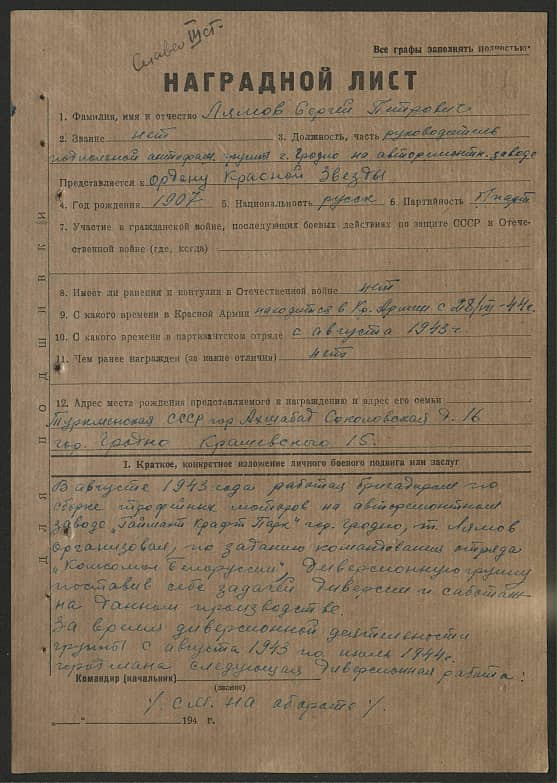 Слава III ст.
Все графы заполнять полностью.
НАГРАДНОЙ ЛИСТ
1. Фамилия, имя и отчество Лямов Сергей Петрович
2. Звание нет 3. Должность, часть руководитель
подпольной антифаш. группы г. Гродно на авторемонтн. заводе
Представляется к ордену Красной Звезды
4. Год рождения 1907 5. Национальность русск 6. Партийность
7. Участие в гражданской войне, последующих боевых действиях по защите СССР и Отече-
ственной войне (где, когда)
8. Имеет ли ранения и контузии в Отечественной войне нет
9. С какого времени в Красной Армии находится в Кр. Армии с 28/VII-44г.
10. С какого времени в партизанском отряде с августа 1943 г.
11. Чем ранее награжден (за какие отличия) нет
12. Адрес места рождения представляемого к награждению и адрес его семьи
Туркменская СССР гор Ахшабад Соколовский д. 16
гор. Гродно Крашевского 15.
I. Краткое, конкретное изложение личного боевого подвига или заслуг
В августе 1943 года работая бригадиром по
сборке трофейных моторов на авторемонтном
заводе Крафт Парк" гор. Гродно, т. Лямов
организовал, по заданию командования отряда
„Комсомол Белоруссии", диверсионную группу
поставив себе задачей диверсии и саботаж
на данном производстве.
За время диверсионной деятельности
группы с августа 1943 по июль 1944г.
следующая диверсионная работа:
Командир (начальник)
(звание)
/. см. на обороте /.
„ " 194 г.
ДЛЯ ПОДШИВКИ